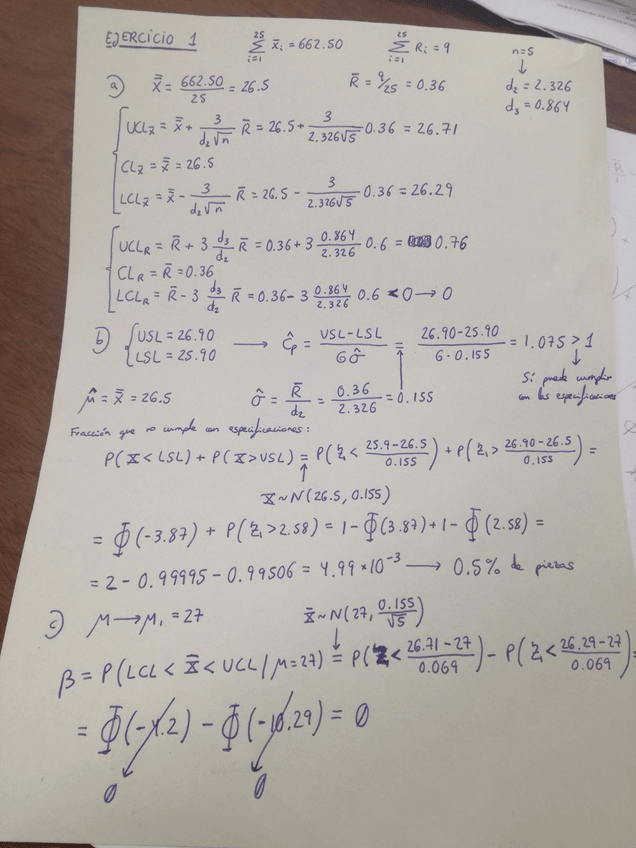 EJERCICIO 1 ∑_{i=1}^{25} x̄ᵢ = 662.50 ∑_{i=1}^{25} Rᵢ = 9 n=5
↓
a) x̿ = 662.50/25 = 26.5 R̄ = 9/25 = 0.36 d₂ = 2.326
d₃ = 0.864
UCL_x̄ = x̿ + 3/(d₂√n) R̄ = 26.5 + 3/(2.326√5) 0.36 = 26.71
CL_x̄ = x̿ = 26.5
LCL_x̄ = x̿ - 3/(d₂√n) R̄ = 26.5 - 3/(2.326√5) 0.36 = 26.29
UCL_R = R̄ + 3 d₃/d₂ R̄ = 0.36 + 3 0.864/2.326 0.6 = 0.76
CL_R = R̄ = 0.36
LCL_R = R̄ - 3 d₃/d₂ R̄ = 0.36 - 3 0.864/2.326 0.6 < 0 → 0
b) { USL = 26.90
LSL = 25.90 → Ĉp = (USL-LSL)/(6σ̂) = (26.90-25.90)/(6·0.155) = 1.075 > 1
↓
Sí puede cumplir
con las especificaciones
μ̂ = x̿ = 26.5 σ̂ = R̄/d₂ = 0.36/2.326 = 0.155
Fracción que no cumple con especificaciones:
P(X < LSL) + P(X > USL) = P(Z < (25.9-26.5)/0.155) + P(Z > (26.90-26.5)/0.155) =
↑
X ~ N(26.5, 0.155)
= Φ(-3.87) + P(Z > 2.58) = 1 - Φ(3.87) + 1 - Φ(2.58) =
= 2 - 0.99995 - 0.99506 = 4.99*10⁻³ → 0.5% de piezas
c) μ → μ₁ = 27 X̄ ~ N(27, 0.155/√5)
↓
β = P(LCL < X̄ < UCL / μ=27) = P(Z < (26.71-27)/0.069) - P(Z < (26.29-27)/0.069) =
= Φ(-4.2) - Φ(-10.29) = 0
0 0